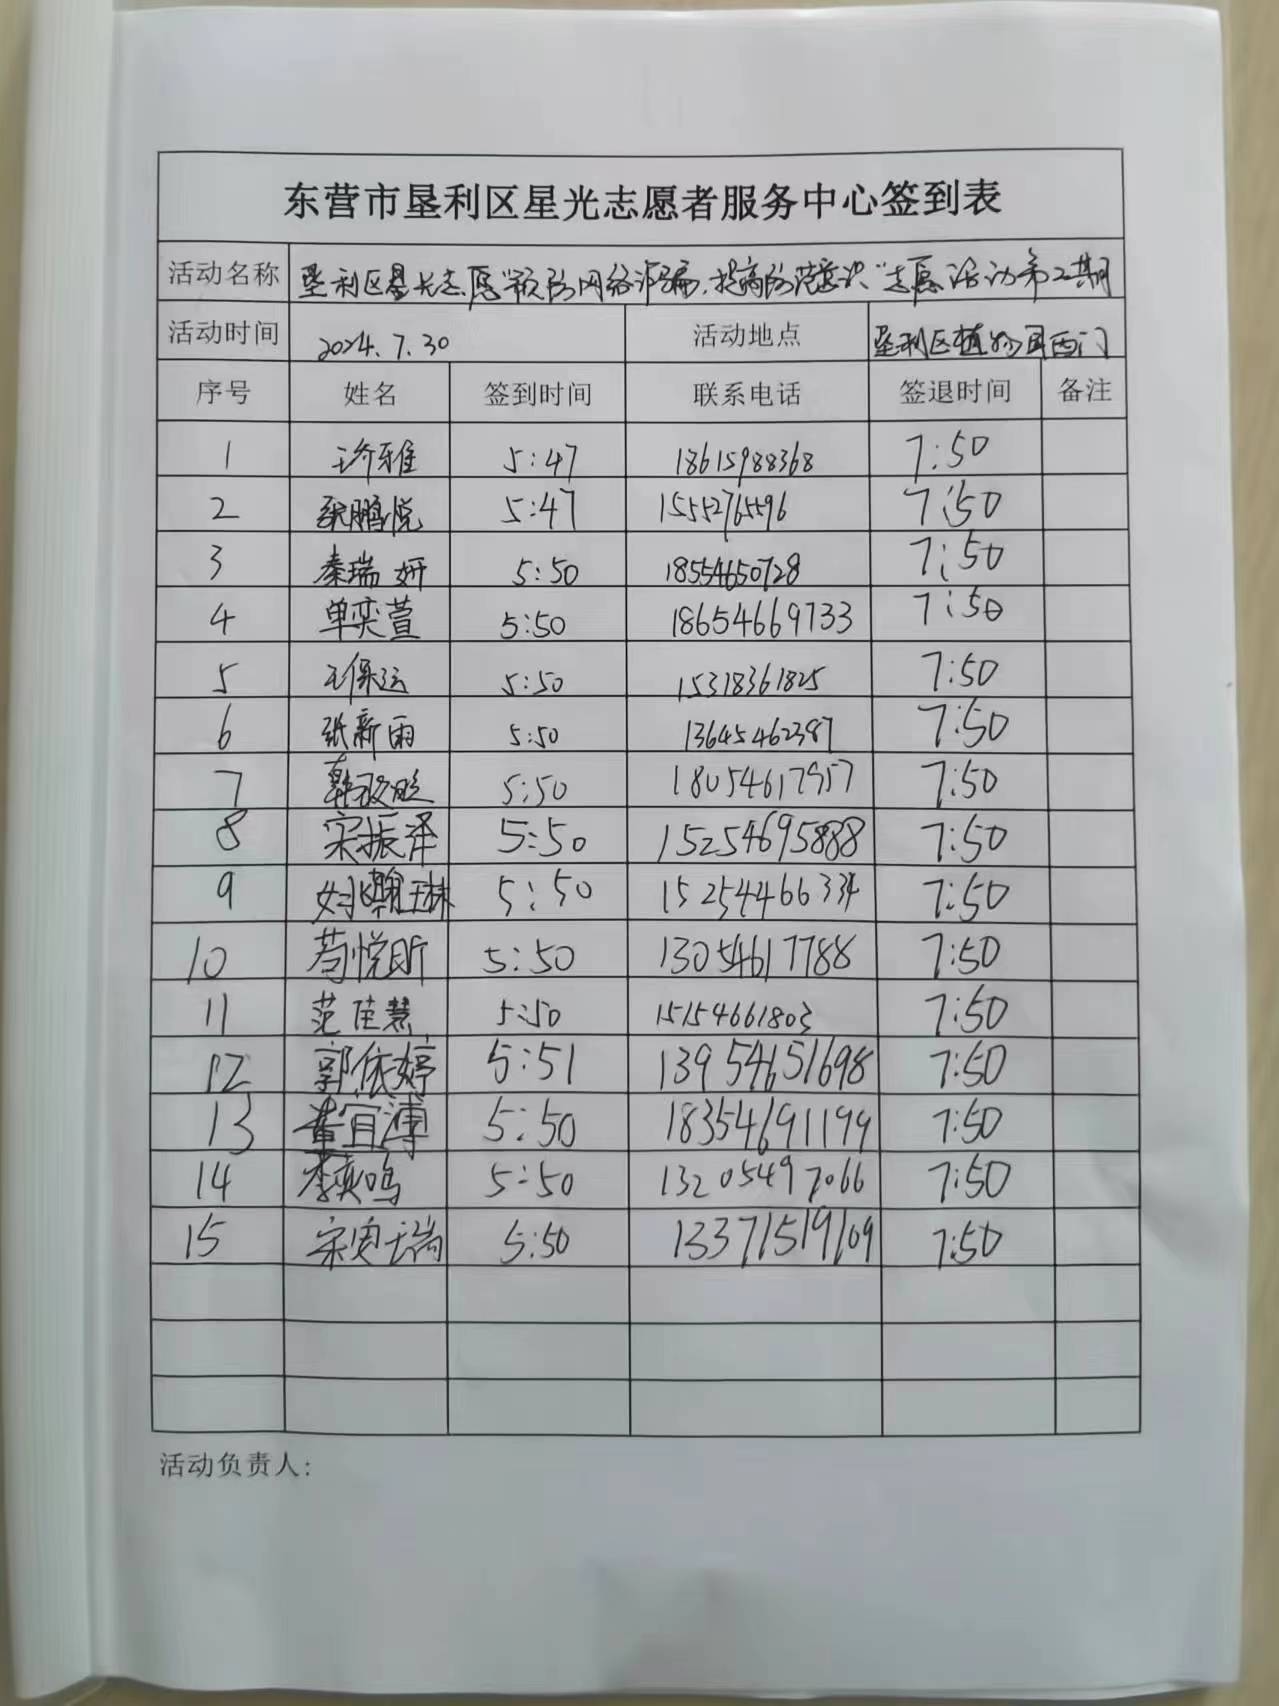 东营市垦利区星光志愿者服务中心签到表
活动名称 垦利区星光志愿"预防网络诈骗,提高防范意识"志愿活动第二期
活动时间 2024.7.30 活动地点 垦利区植物园西门
序号 姓名 签到时间 联系电话 签退时间 备注
1 5:47 18615988368 7:50
2 张鹏悦 5:47 15552765596 7:50
3 秦瑞妍 5:50 18554650728 7:50
4 单奕萱 5:50 18654669733 7:50
5 王保运 5:50 15318361825 7:50
6 张新雨 5:50 13645462387 7:50
7 5:50 18054617957 7:50
8 宋振泽 5:50 15254695888 7:50
9 姚翰琳 5:50 15254466334 7:50
10 苟悦昕 5:50 13054617788 7:50
11 范佳慧 5:50 15154661803 7:50
12 郭依婷 5:51 13954651698 7:50
13 董宜溥 5:50 18354691199 7:50
14 李奕鸣 5:50 13205497066 7:50
15 5:50 13371519169 7:50
活动负责人: